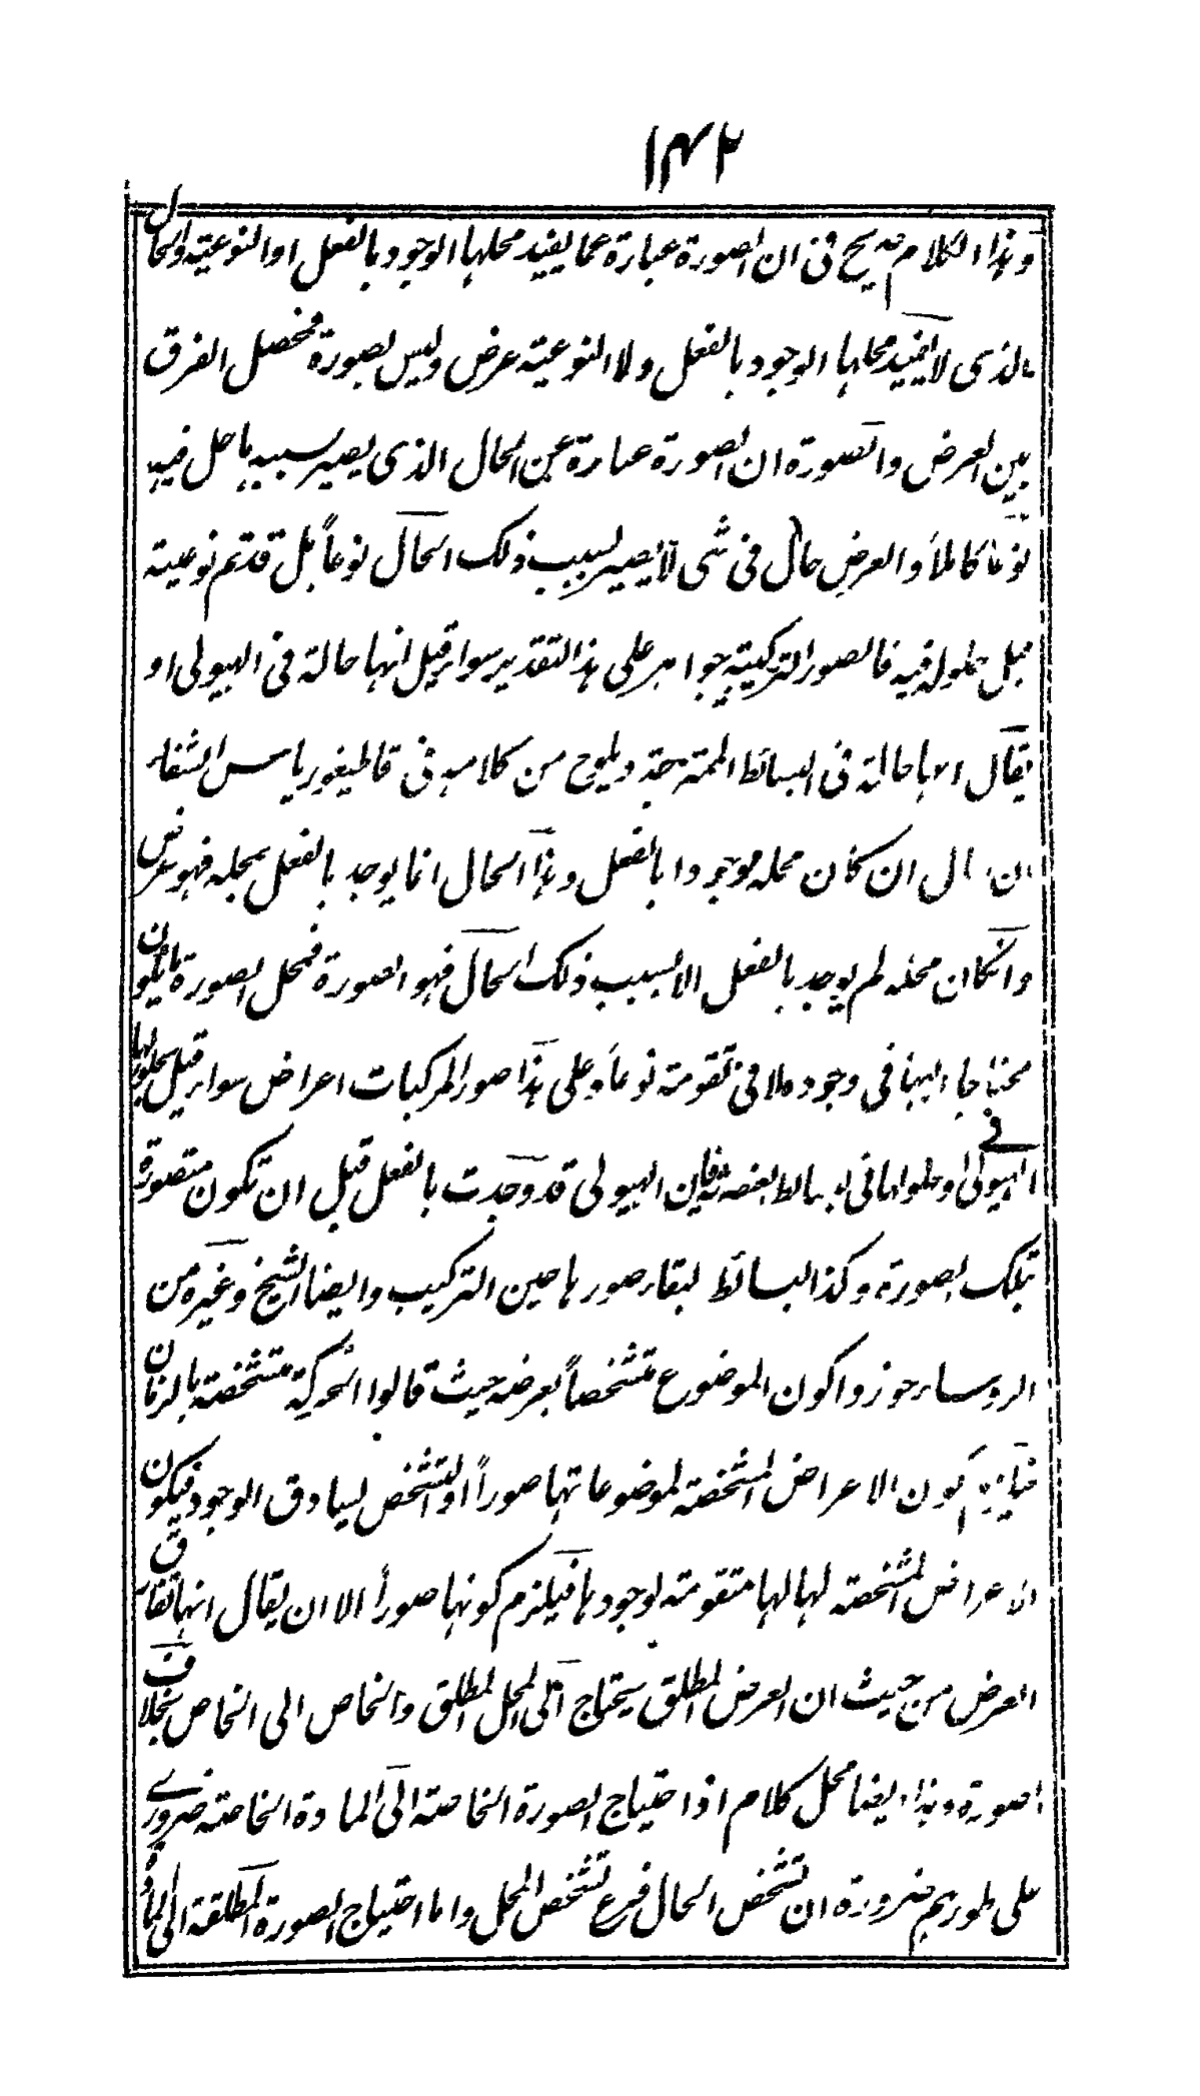 ١٤٢
وهذا الكلام صريح فى ان الصورة عبارة عما يفيد محلها الوجود بالفعل او النوعية والحال
الذى لا يفيد محلها الوجود بالفعل ولا النوعية عرض وليس بصورة فمحصل الفرق
بين العرض والصورة ان الصورة عبارة عن الحال الذى يصير بسببه ما حل فيه
نوعا كاملاً والعرض حال فى شى لا يصير بسبب ذلك الحال نوعاً بل قد تم نوعية
قبل حلوله فيه فالصور التركيبية جواهر على هذا التقدير سواء قيل انها حالة فى الهيولى او
يقال انها حالة فى البسائط الممتزجة ويلوح من كلامه فى قاطيغورياس الشفاء
ان الحال ان كان محله موجودا بالفعل وهذا الحال انما يوجد بالفعل بمحله فهو عرض
وانكان محله لم يوجد بالفعل الا بسبب ذلك الحال فهو الصورة فمحل الصورة ما يكون
محتاجا اليها فى وجوده لا فى تقومه نوعاً وعلى هذا صور المركبات اعراض سواء قيل بحلولها
فى الهيولى او حلولها فى البسائط العنصرية فان الهيولى قد وجدت بالفعل قبل ان تكون متصورة
بتلك الصورة وكذا البسائط لبقاء صورها حين التركيب وايضا الشيخ وغيره من
الرؤساء جوزوا كون الموضوع متشخصاً بعرضه حيث قالوا الحركة متشخصة بالزمان
فيلزم كون الاعراض المشخصة لموضوعاتها صوراً اذ التشخص يساوق الوجود فيكون
الاعراض المشخصة لها لها متقومة لوجودها فيلزم كونها صوراً الا ان يقال انها تفارق
العرض من حيث ان العرض المطلق يحتاج الى المحل المطلق والخاص الى الخاص بخلاف
الصورة وهذا ايضا محل كلام اذ احتياج الصورة الخاصة الى المادة الخاصة ضرورى
على طورهم ضرورة ان تشخص الحال فرع تشخص المحل واما احتياج الصورة المطلقة الى المادة